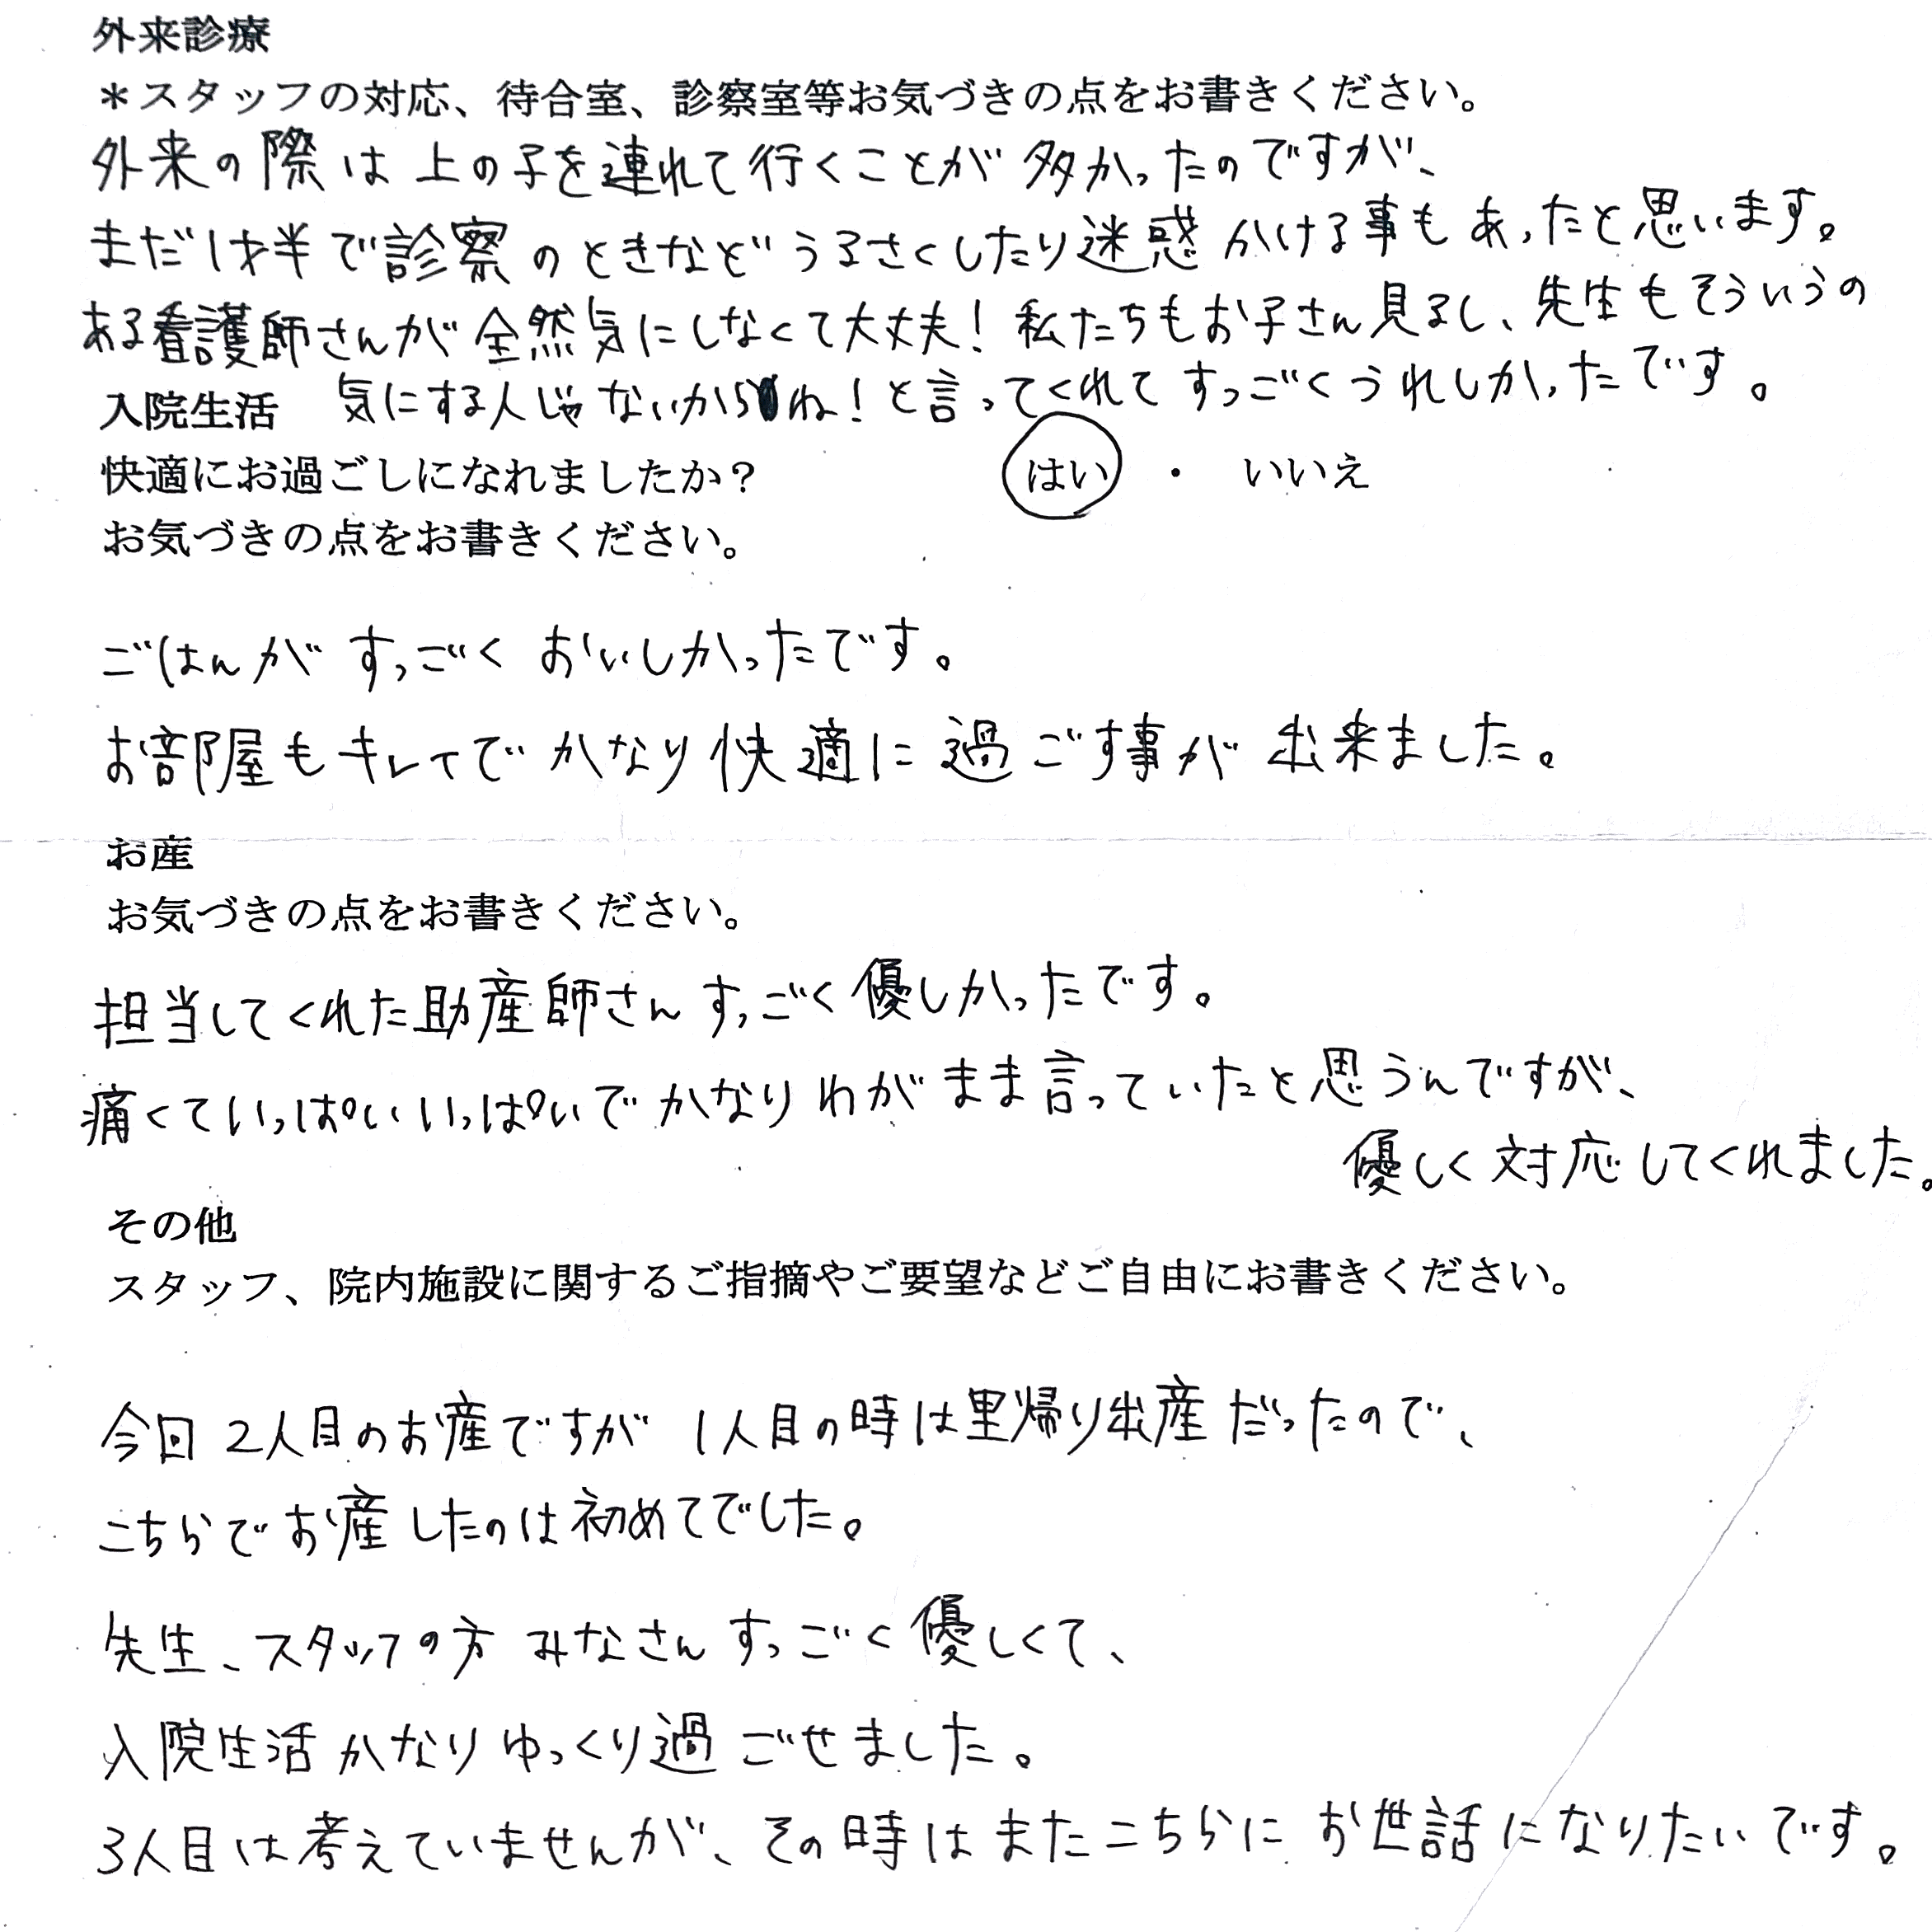 外来診療
＊スタッフの対応、待合室、診察室等お気づきの点をお書きください。
外来の際は上の子を連れて行くことが多かったのですが、
まだ1才半で診察のときなどうるさくしたり迷惑かける事もあったと思います。
ある看護師さんが全然気にしなくて大丈夫！私たちもお子さん見るし、先生もそういうの
気にする人じゃないからね！と言ってくれてすっごくうれしかったです。
入院生活
快適にお過ごしになれましたか？　はい　・　いいえ
お気づきの点をお書きください。
ごはんがすっごくおいしかったです。
お部屋もキレイでかなり快適に過ごす事が出来ました。
お産
お気づきの点をお書きください。
担当してくれた助産師さんすっごく優しかったです。
痛くていっぱいいっぱいでかなりわがまま言っていたと思うんですが、
優しく対応してくれました。
その他
スタッフ、院内施設に関するご指摘やご要望などご自由にお書きください。
今回2人目のお産ですが1人目の時は里帰り出産だったので、
こちらでお産したのは初めてでした。
先生、スタッフの方みなさんすっごく優しくて、
入院生活かなりゆっくり過ごせました。
3人目は考えていませんが、その時はまたこちらにお世話になりたいです。